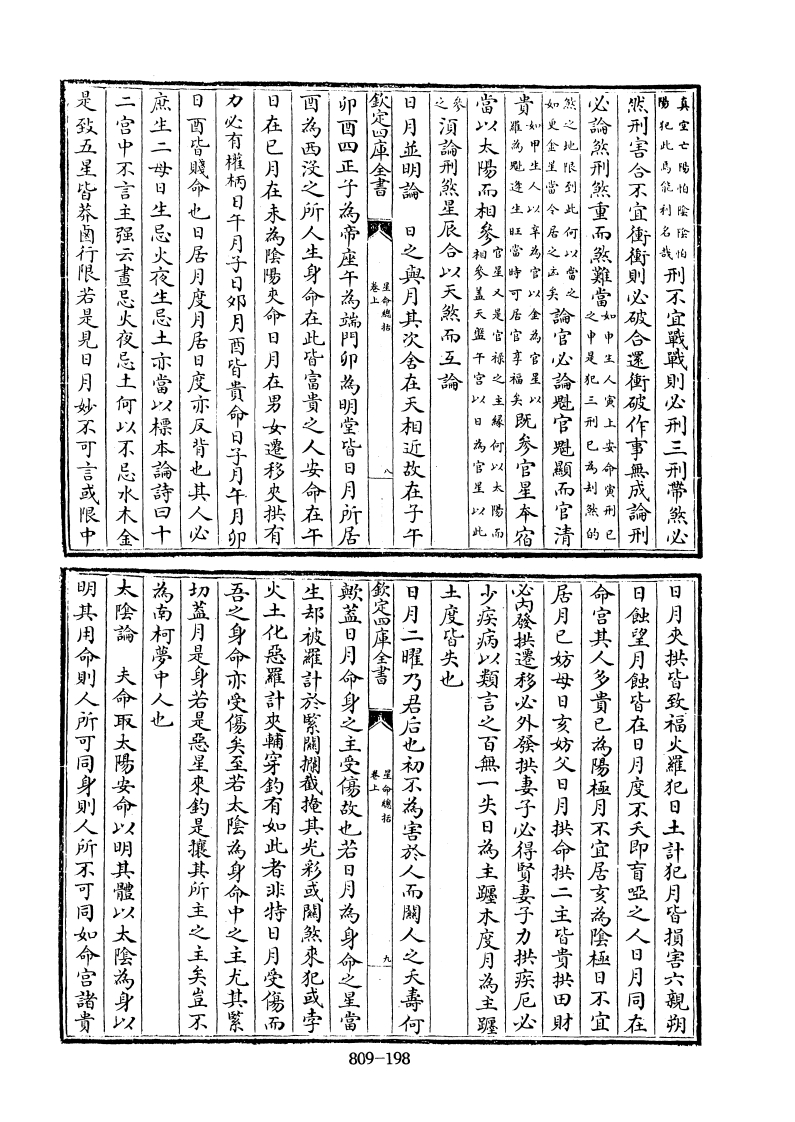 真空亡陽怕陰陰怕
陽犯此焉能利名哉
刑不宜戰戰則必刑三刑帶煞必
然刑害合不宜衝衝則必破合還衝破作事無成論刑
必論煞刑煞重而煞難當
如申生人寅上安命寅刑巳
之申是犯三刑巳為刦煞的
然之地限到此何以當之
如更金星當令居之凶矣
論官必論魁官魁顯而官清
貴
如甲生人以辛為官以金為官星以
羅為魁逢生旺當時可居官享福矣
既參官星夲宿
當以太陽而相參
官星又是官禄之主緣何以太陽而
相參蓋天盤午宮以日為官星以此
參
之
湏論刑煞星辰合以天煞而互論
日月並明論 日之與月其次舍在天相近故在子午
欽定四庫全書
星命總括
卷上
八
卯酉四正子為帝座午為端門卯為明堂皆日月所居
酉為西沒之所人生身命在此皆富貴之人安命在午
日在巳月在未為陰陽夾命日月在男女遷移夾拱有
力必有權柄日午月子日夘月酉皆貴命日子月午月卯
日酉皆賤命也日居月度月居日度亦反背也其人必
庶生二母日生忌火夜生忌土亦當以標本論詩曰十
二宮中不言主强云晝忌火夜忌土何以不忌水木金
是致五星皆莽鹵行限若是見日月妙不可言或限中
日月夾拱皆致福火羅犯日土計犯月皆損害六親朔
日蝕望月蝕皆在日月度不夭即盲啞之人日月同在
命宮其人多貴巳為陽極月不宜居亥為陰極日不宜
居月巳妨母日亥妨父日月拱命拱二主皆貴拱田財
必内發拱遷移必外發拱妻子必得賢妻子力拱疾厄必
少疾病以類言之百無一失日為主躔木度月為主躔
土度皆失也
日月二曜乃君后也初不為害於人而關人之夭壽何
欽定四庫全書
星命總括
卷上
九
歟蓋日月命身之主受傷故也若日月為身命之星當
生却被羅計於緊關攔截掩其光彩或關煞來犯或孛
火土化惡羅計夾輔穿釣有如此者非特日月受傷而
吾之身命亦受傷矣至若太陰為身命中之主尤其緊
切蓋月是身若是惡星來釣是攘其所主之主矣豈不
為南柯夢中人也
太陰論 夫命取太陽安命以明其體以太陰為身以
明其用命則人所可同身則人所不可同如命宮諸貴
809-198